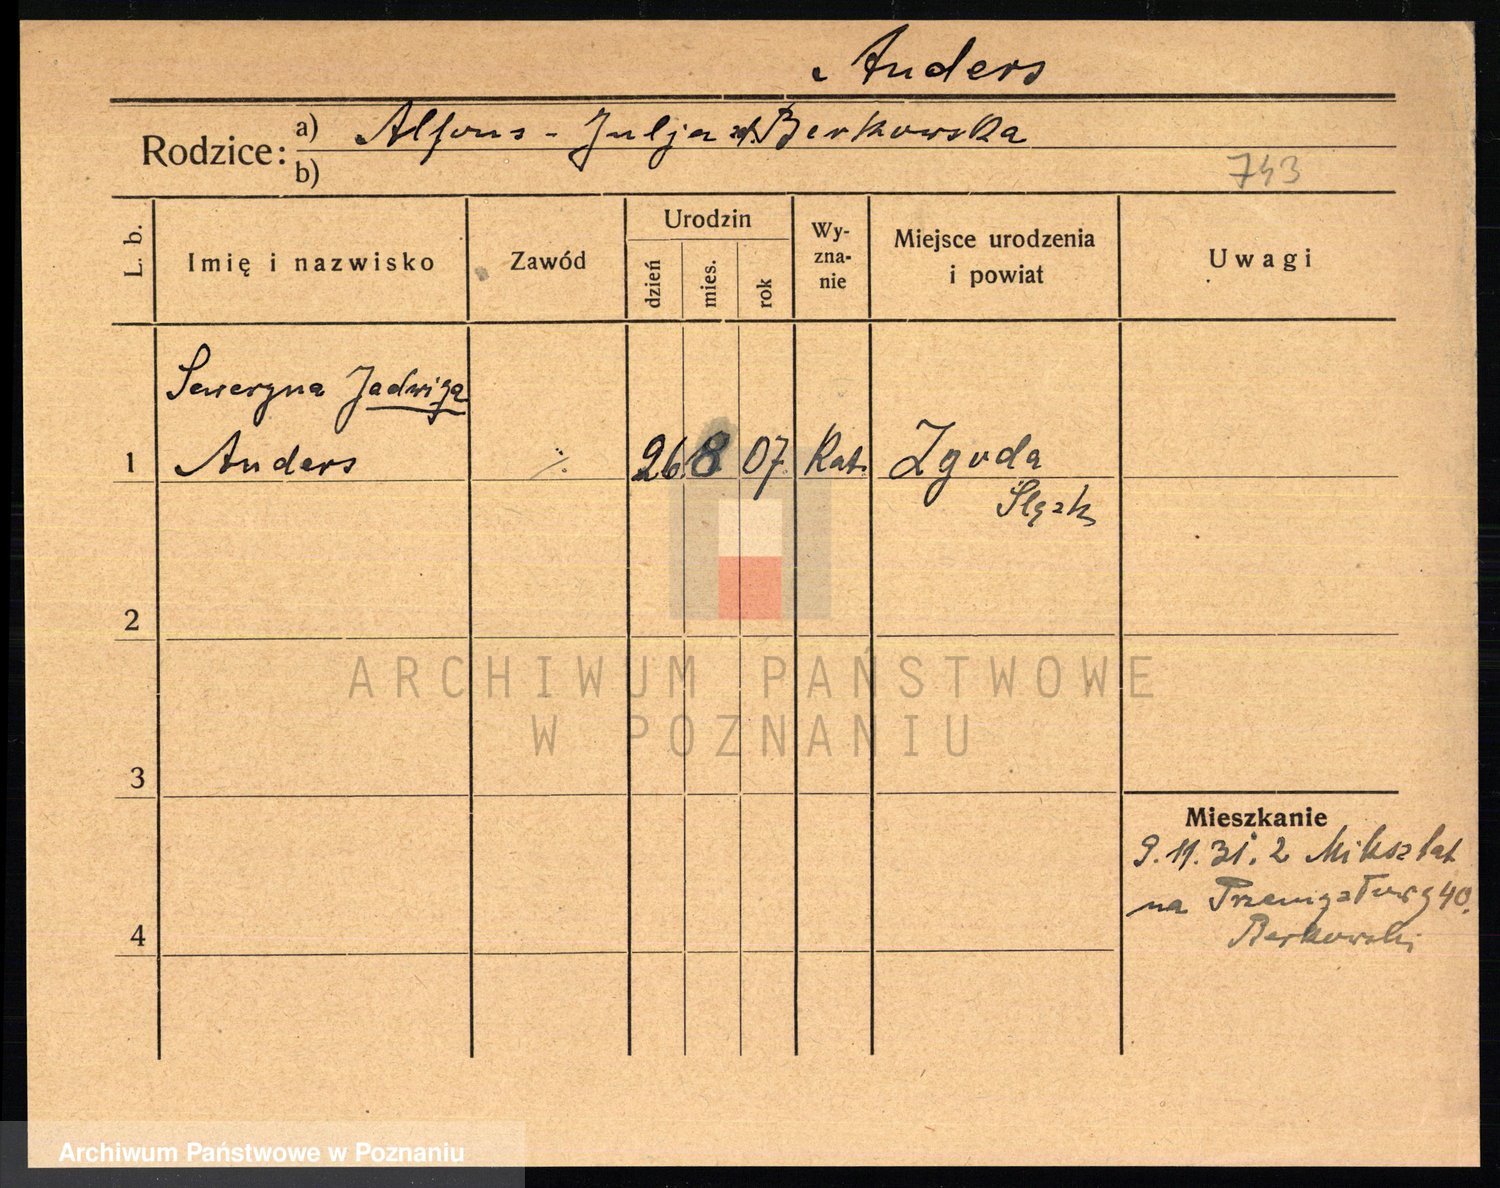 Anders
Rodzice: a) Alfons - Julja zd. Berkowska
b)
743
L. b.
Imię i nazwisko
Zawód
Urodzin
dzień
mies.
rok
Wy-
zna-
nie
Miejsce urodzenia
i powiat
Uwagi
Seweryna Jadwiga
1 Anders 26. 8 07. Kat. Zgoda
Śląsk
2
3
4
Mieszkanie
9. 11. 31. z Mikstat
na 40.
Berkowski
ARCHIWUM PAŃSTWOWE
W POZNANIU
Archiwum Państwowe w Poznaniu